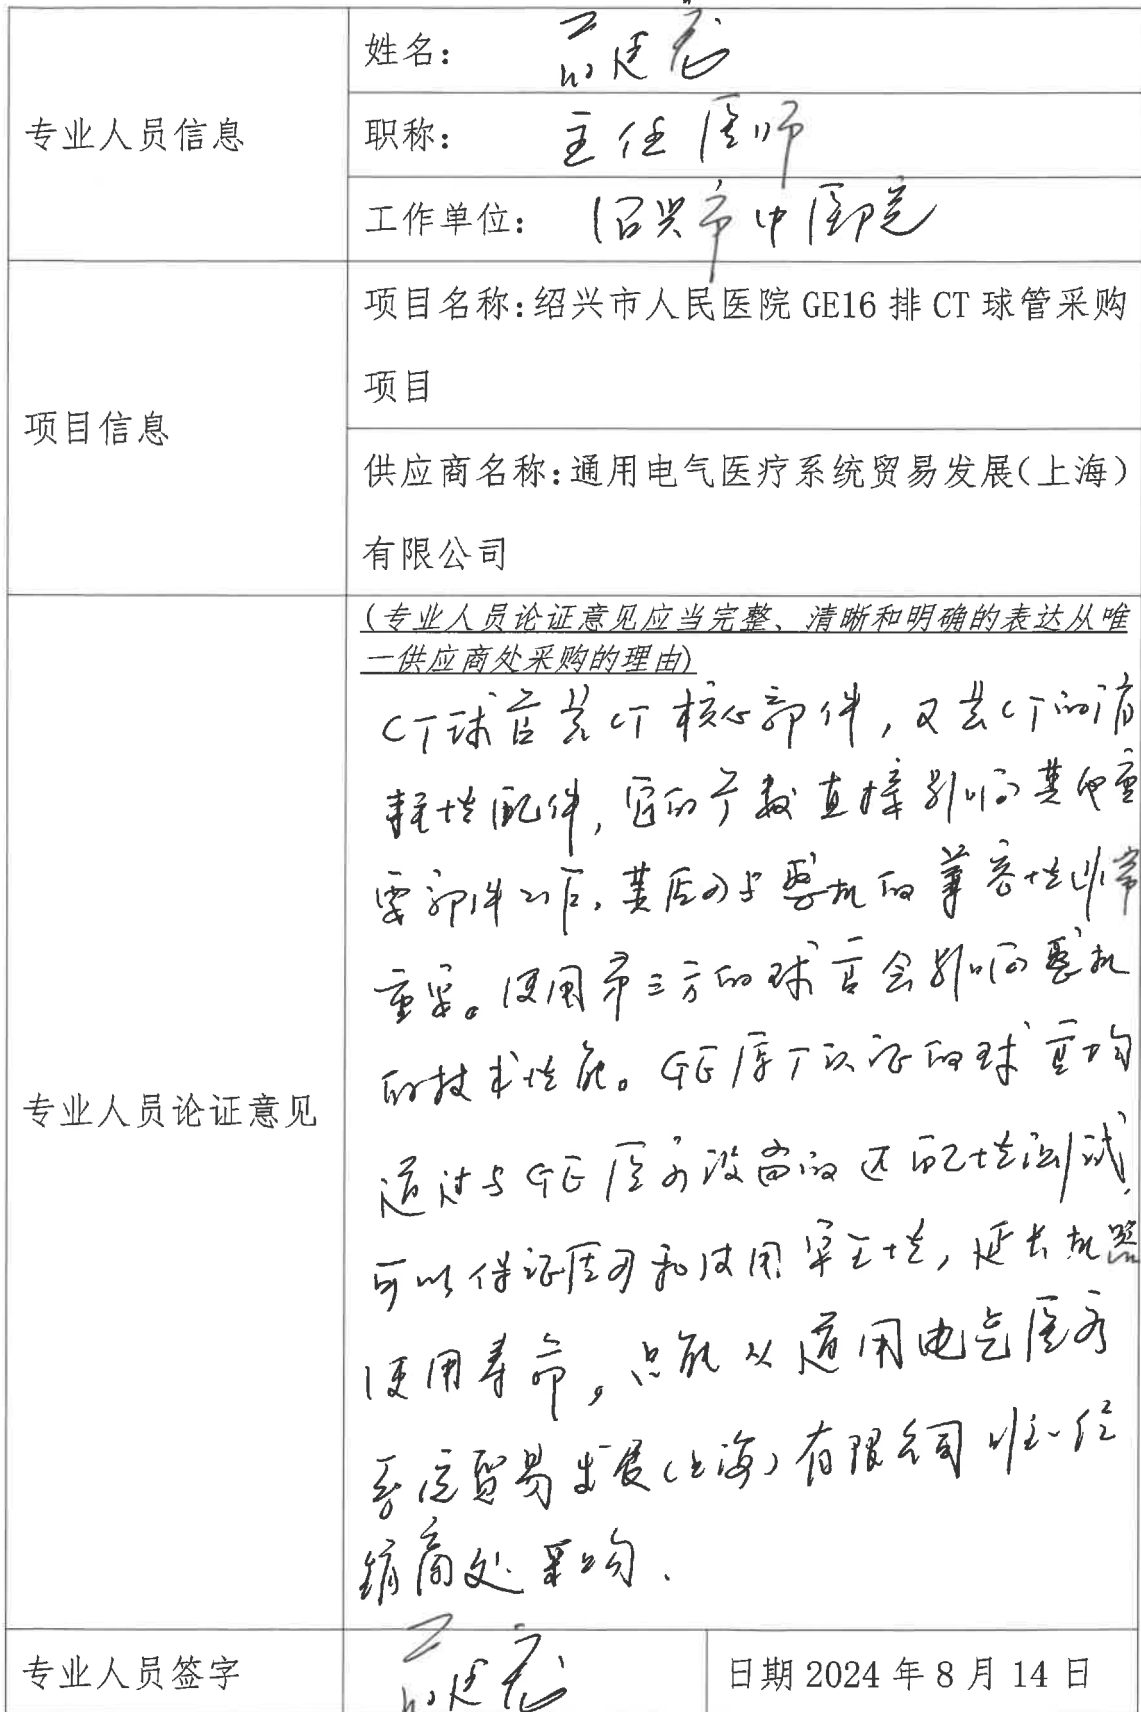 专业人员信息
姓名：
职称： 主任医师
工作单位： 绍兴市中医院
项目信息
项目名称:绍兴市人民医院 GE16 排 CT 球管采购
项目
供应商名称:通用电气医疗系统贸易发展(上海)
有限公司
专业人员论证意见
(专业人员论证意见应当完整、清晰和明确的表达从唯
一供应商处采购的理由)
CT球管是CT核心部件,又是CT的消
耗性配件,它的参数直接影响其他重
要部件工作,其匹配与整机的兼容性非常
重要。使用第三方的球管会影响整机
的技术性能。GE原厂认证的球管均
通过与GE医疗设备的适配性测试,
可以保证医疗和使用安全性,延长机器
使用寿命,只能从通用电气医疗
系统贸易发展(上海)有限公司唯一经
销商处采购.
专业人员签字
日期 2024 年 8 月 14 日